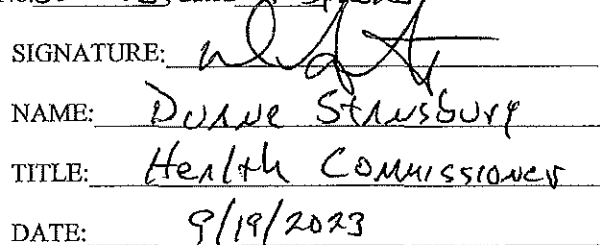 SIGNATURE:
NAME: Duane Stansbury
TITLE: Health Commissioner
DATE: 9/19/2023